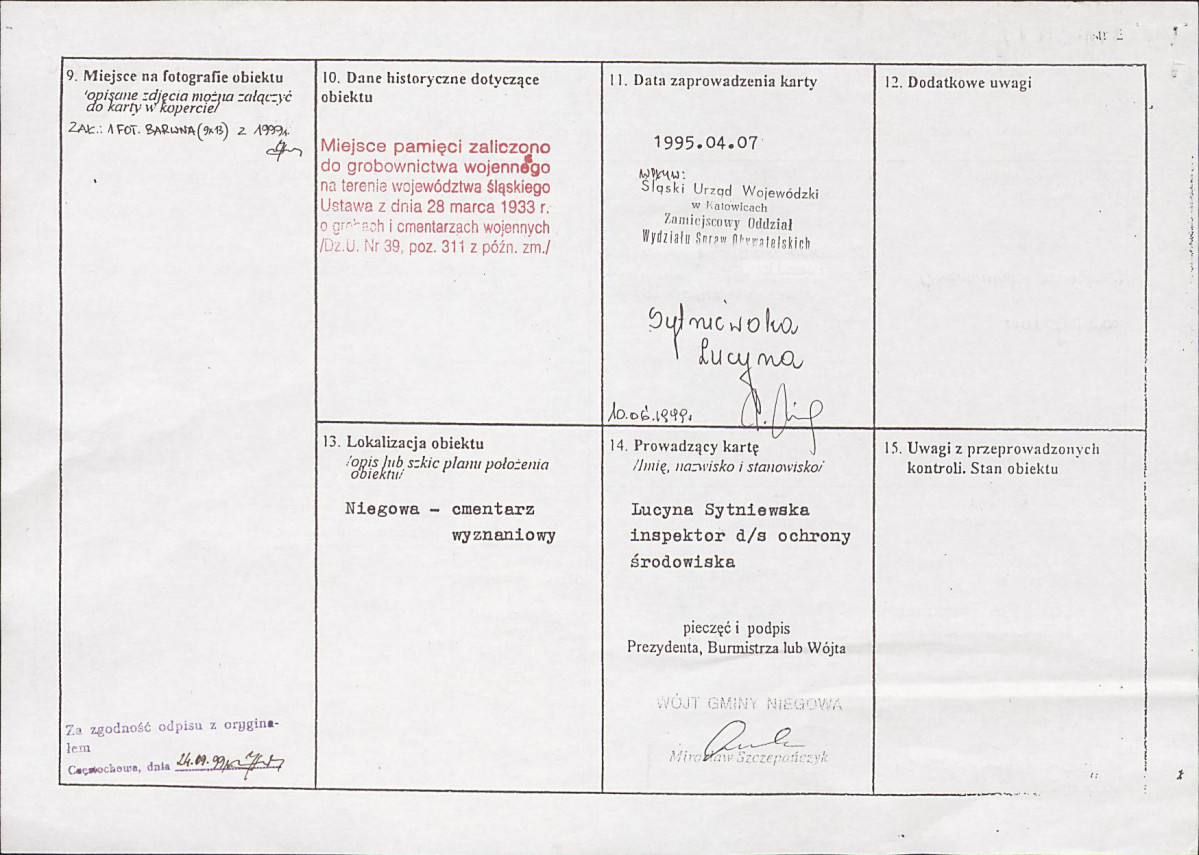 9. Miejsce na fotografie obiektu
/opisane zdjęcia można załączyć
do karty w kopercie/
ZAŁ.: 1 FOT. BARWNA (9x13) Z 1999r.
Za zgodność odpisu z orygina-
łem
Częstochowa, dnia
10. Dane historyczne dotyczące
obiektu
Miejsce pamięci zaliczono
do grobownictwa wojennego
na terenie województwa śląskiego
Ustawa z dnia 28 marca 1933 r.
o grobach i cmentarzach wojennych
/Dz.U. Nr 39, poz. 311 z późn. zm./
11. Data zaprowadzenia karty
1995.04.07
WPŁYW:
Śląski Urząd Wojewódzki
w Katowicach
Zamiejscowy Oddział
Wydziału Spraw Obywatelskich
Sytniewska
Lucyna
10.06.1999.
12. Dodatkowe uwagi
13. Lokalizacja obiektu
/opis lub szkic planu położenia
obiektu/
Niegowa - cmentarz
wyznaniowy
14. Prowadzący kartę
/Imię, nazwisko i stanowisko/
Lucyna Sytniewska
inspektor d/s ochrony
środowiska
pieczęć i podpis
Prezydenta, Burmistrza lub Wójta
WÓJT GMINY NIEGOWA
Mirosław Szczepańczyk
15. Uwagi z przeprowadzonych
kontroli. Stan obiektu